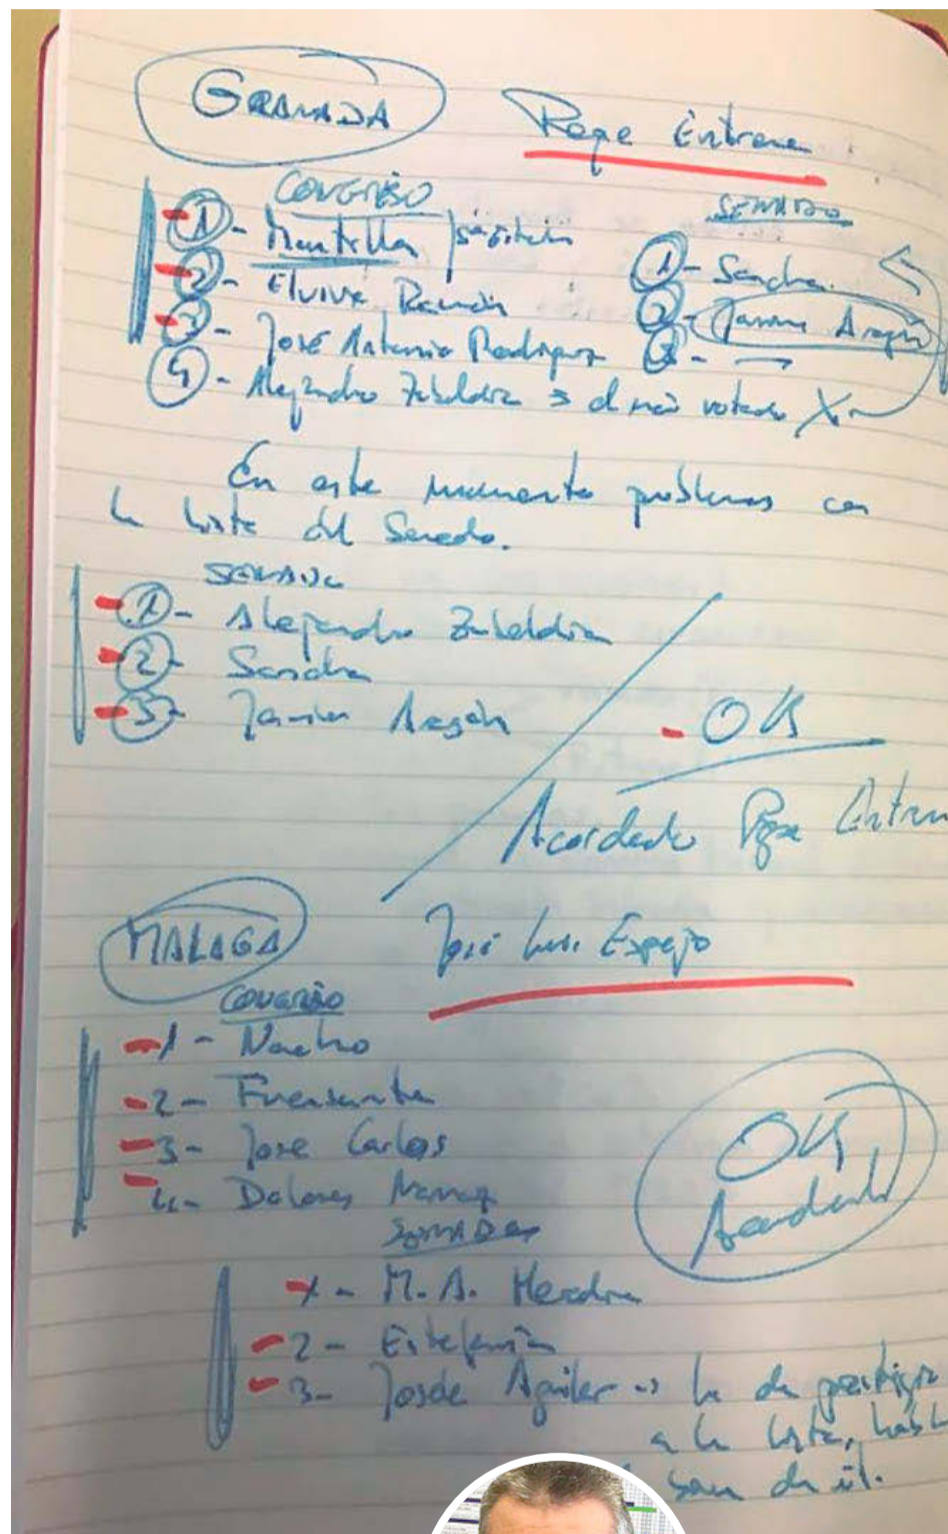 GRANADA Pepe Entrena
CONGRESO
1 - Mantilla
2 - Elvira Ramón
3 - José Antonio Rodríguez
4 - Alejandro Zubeldia → el más votado X
SENADO
1 - Sandra
2 - Javier Aragón
3 - →
En este momento problemas con
la lista del Senado.
SENADO
1 - Alejandro Zubeldia
2 - Sandra
3 - Javier Aragón
- OK
Acordado Pepe Entren
MALAGA José Luis Espejo
CONGRESO
1 - Nacho
2 - Fuensanta
3 - José Carlos
4 - Dolores
SENADO
1 - M.A. Heredia
2 - Estefanía
3 - Aguilar → le da prestigio
a la lista, habl
de él.
OK
Acordado